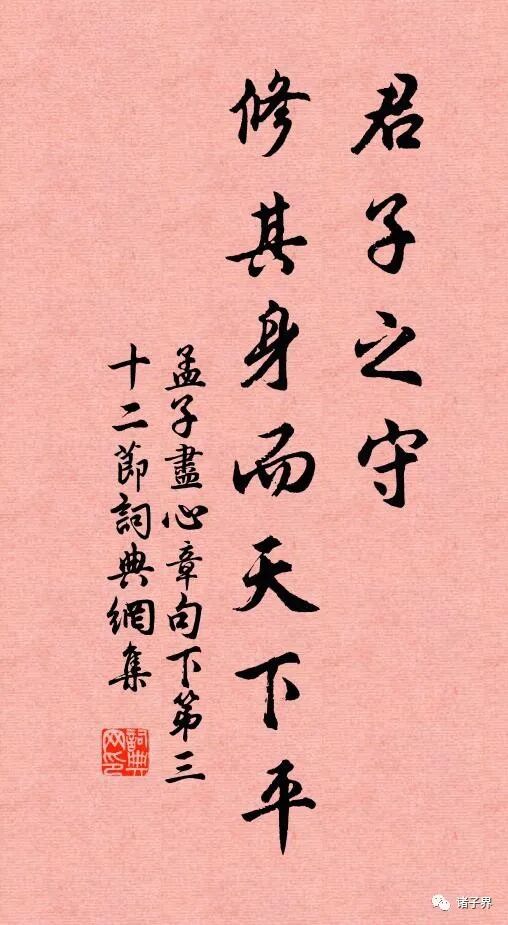 君子之守
修其身而天下平
孟子盡心章句下第三
十二節詞典網集
詞典
网印
诸子界